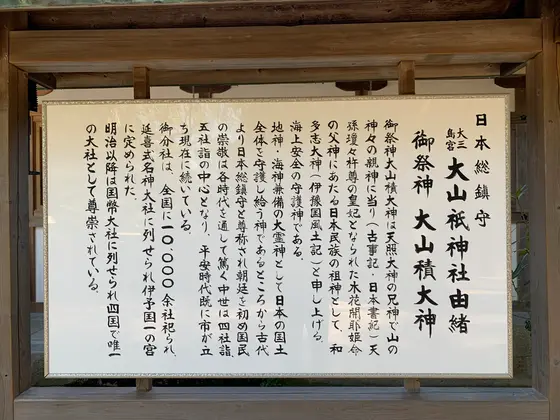 日本総鎮守
大三島宮 大山祇神社由緒
御祭神 大山積大神
御祭神大山積大神は天照大神の兄神で山の
神々の親神に当り(古事記・日本書紀)天
孫瓊々杵尊の皇妃となられた木花開耶姫命
の父神にあたる日本民族の祖神として、和
多志大神(伊豫国風土記)と申し上げる。
海上安全の守護神である。
地神・海神兼備の大霊神として日本の国土
全体を守護し給う神であるところから古代
より日本総鎮守と尊称され朝廷を初め国民
の崇敬は各時代を通して篤く中世は四社詣
五社詣の中心となり、平安時代既に市が立
ち現在に続いている。
御介社は、全国に一〇・〇〇〇余社祀られ、
延喜式名神大社に列せられ伊予国一の宮
に定められた。
明治以降は国幣大社に列せられ四国で唯一
の大社として尊崇されている。